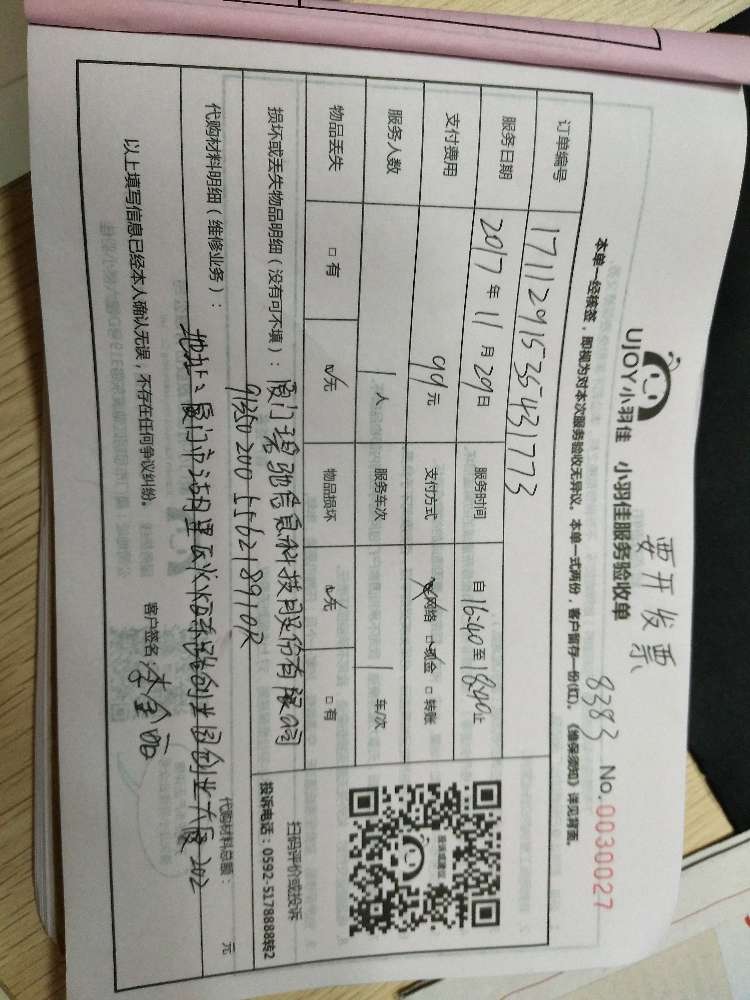 要开发票
UJOY小羽佳 小羽佳服务验收单
8383 No.0030027
本单一经核签，即视为对本次服务验收无异议。本单一式两份，客户留存一份(红)。《维保须知》详见背面。
订单编号 171129153554431773
服务日期 2017年11月29日 服务时间 自16:40至18:40止
支付费用 99元 支付方式 □网络 □现金 □转账
服务人数 1人 服务车次 1车/次
物品丢失 □有 □无 物品损坏 □无 □有
损坏或丢失物品明细（没有可不填）：厦门 信息科技股份有限公司
代购材料明细（维修业务）：
地址：厦门市 创业园创业大厦202
代购材料总额： 元
以上填写信息已经本人确认无误，不存在任何争议纠纷。
客户签名
投诉或建议
扫码评价或投诉
投诉电话：0592-5178888转2